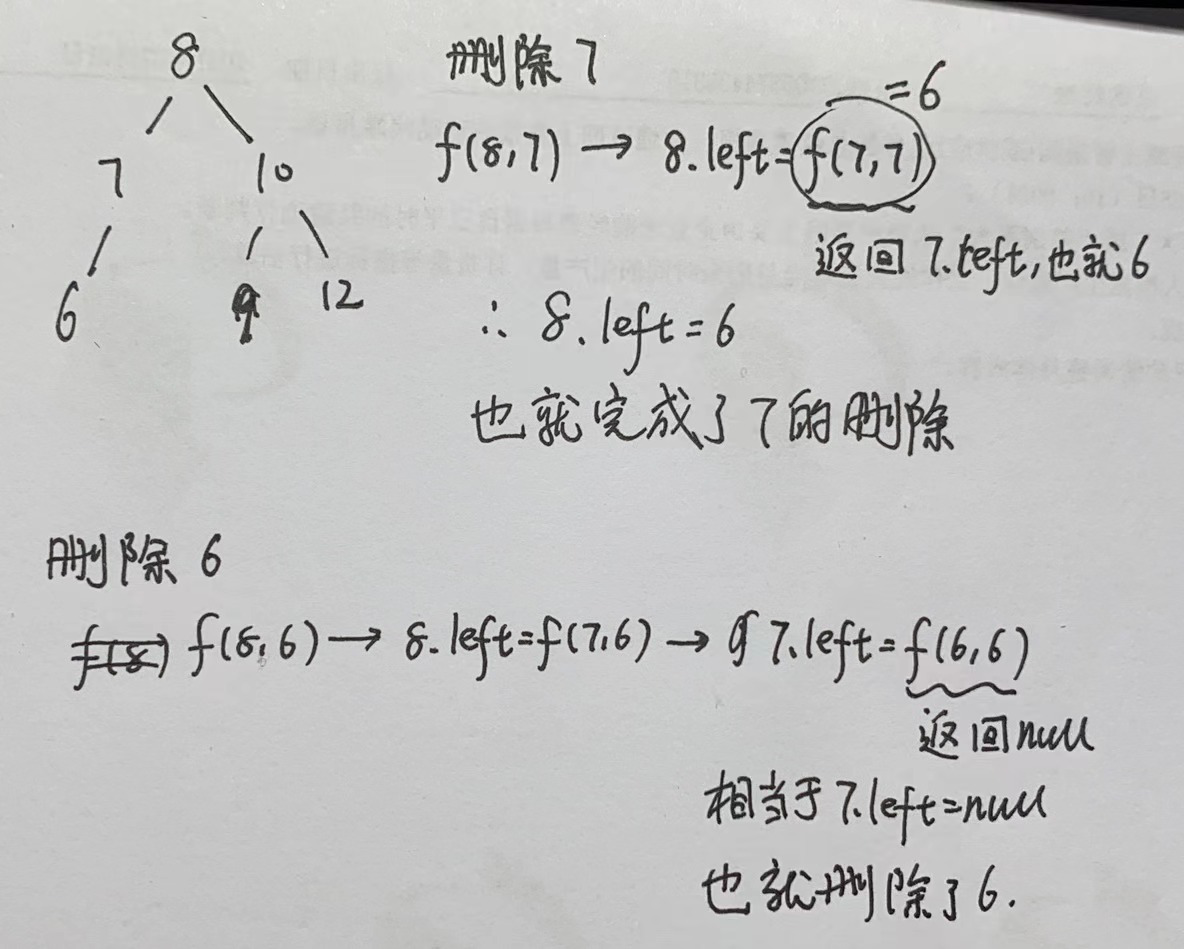 8
7 10
6 9 12
删除 7
=6
f(8,7) → 8.left=f(7,7)
返回 7.left,也就6
∴ 8.left=6
也就完成了7的删除
删除 6
f(8) f(8,6) → 8.left=f(7,6) → 7.left=f(6,6)
返回null
相当于 7.left=null
也就删除了6.